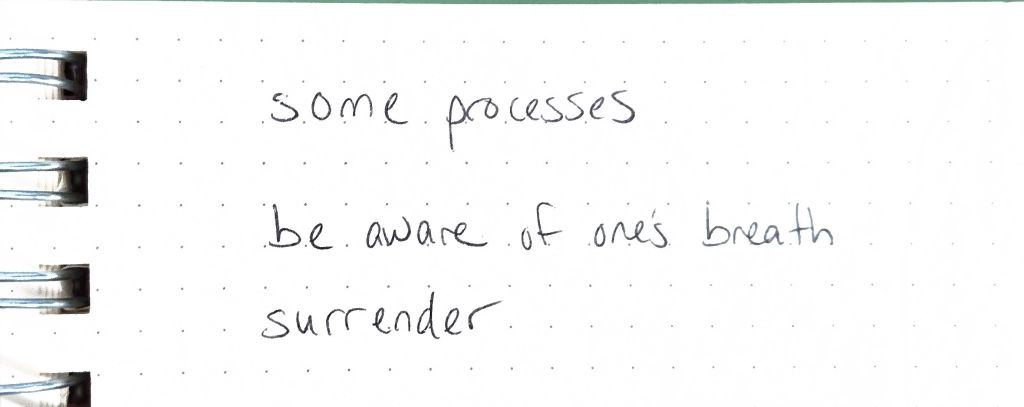 some processes
be aware of one's breath
surrender